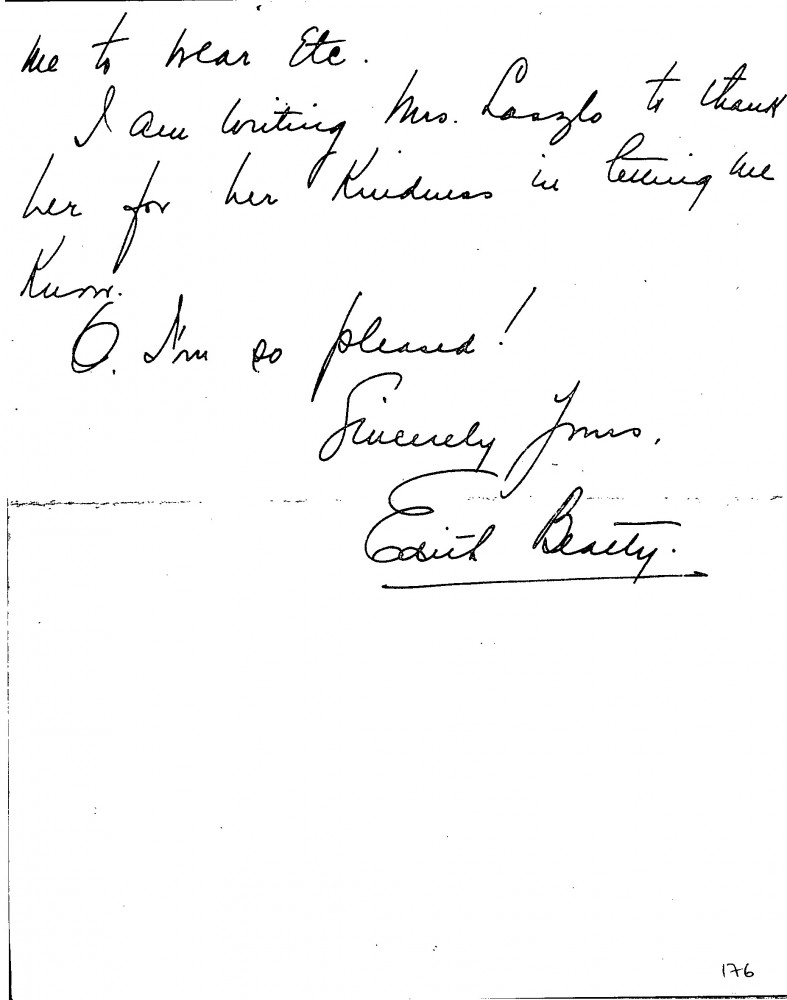 me to wear Etc.
I am writing Mrs. Laszlo to thank
her for her Kindness in letting me
Know.
O. I'm so pleased!
Sincerely Yours,
Edith Beatty.
176